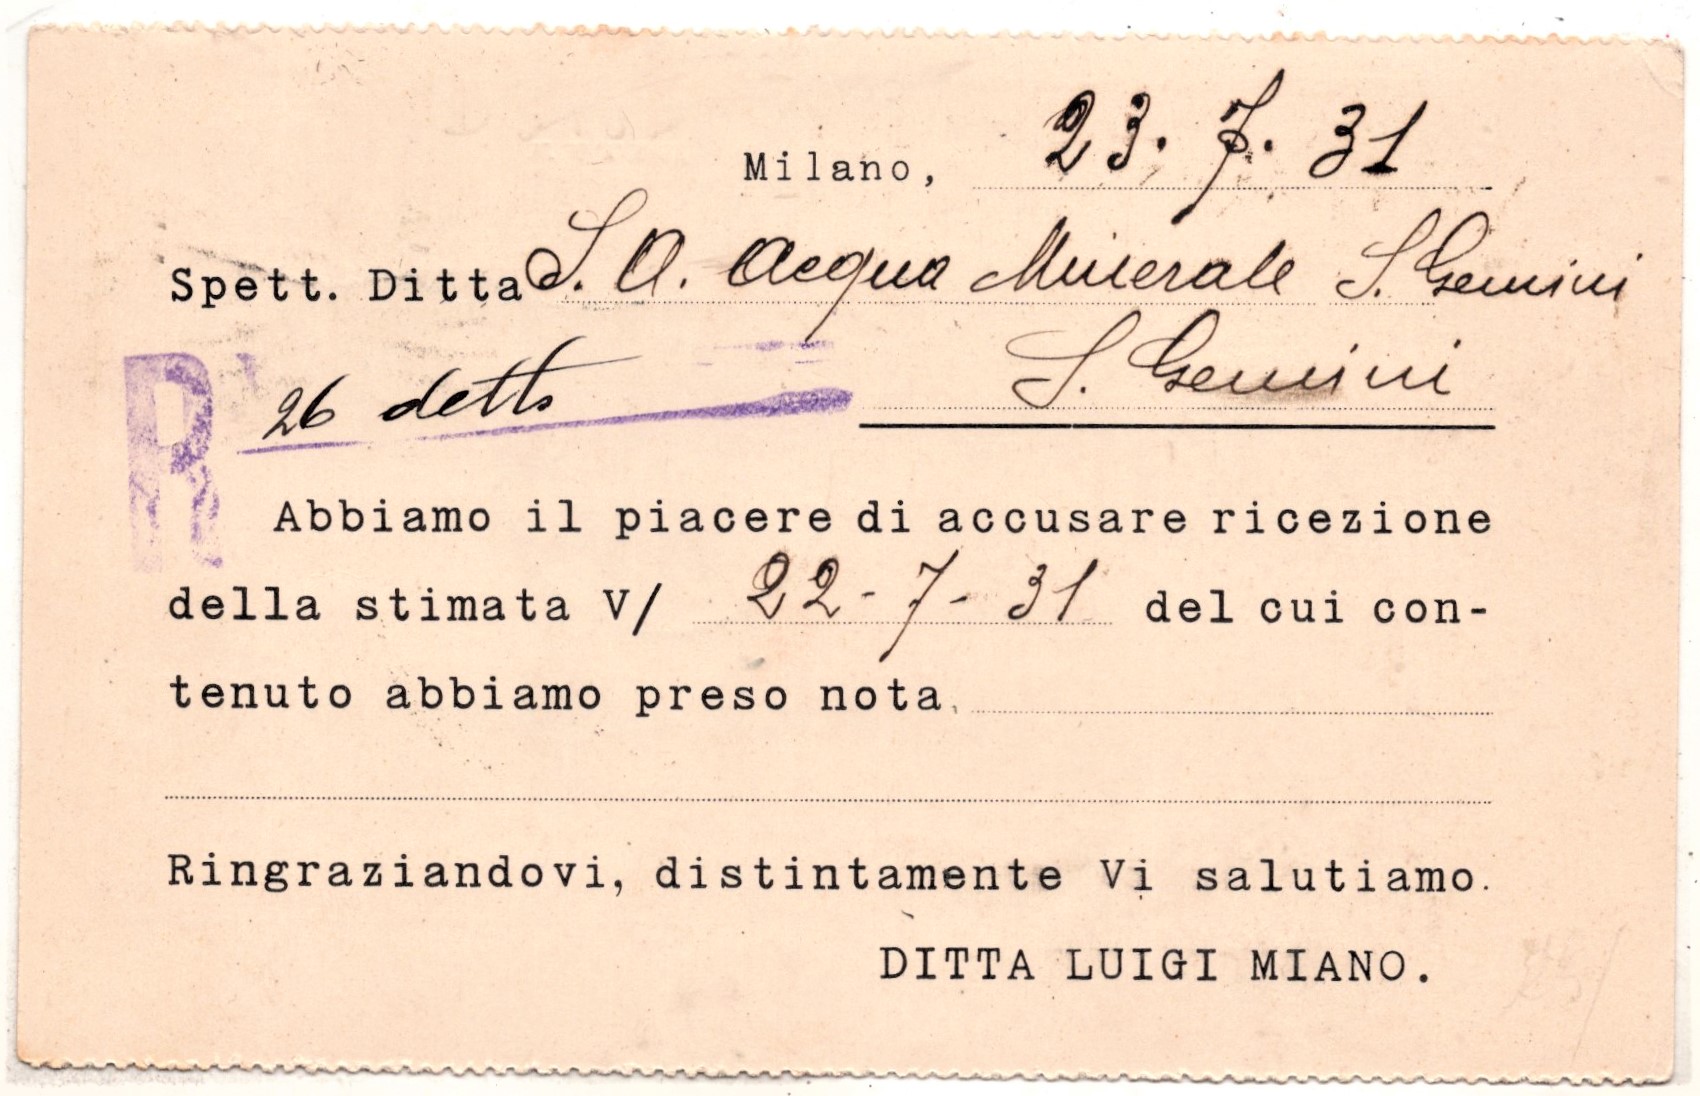 Milano, 23.7.31
Spett. Ditta S. A. Acqua Minerale S. Gemini
S. Gemini
R
26 detto
Abbiamo il piacere di accusare ricezione
della stimata V/ 22-7-31 del cui con-
tenuto abbiamo preso nota
Ringraziandovi, distintamente Vi salutiamo.
DITTA LUIGI MIANO.